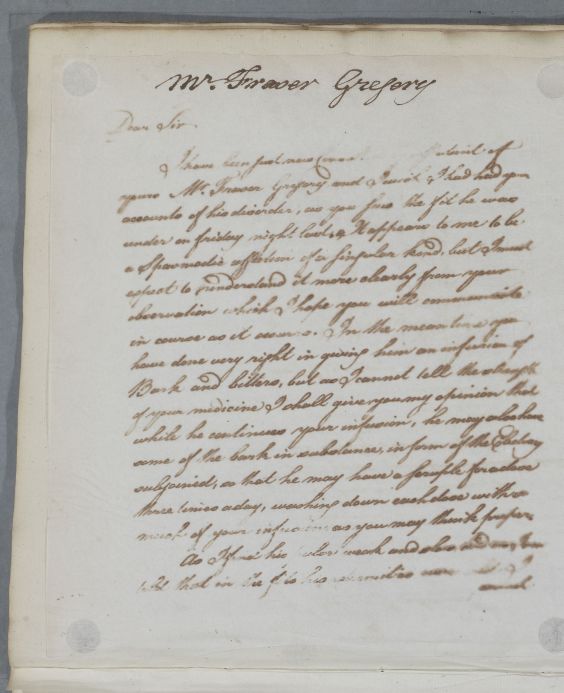 Mr. Fraser Gregory
Dear Sir.
I have been just now of
yours Mr. Fraser Gregory and I wish I had had your
accounts of his disorder, as you saw the fit he was
under on friday night last. It appears to me to be
a Spasmodic affection of a singular kind, but I must
expect to understand it more clearly from your
observation which I hope you will communicate
in course as it occurs. In the meantime you
have done very right in giving him an infusion of
Bark and bitters, but as I cannot tell the strength
of your medicine I shall give you my opinion that
while he continues your infusion, he may also have
some of the bark in substance, in form of the Electuary
subjoined, so that he may have a scruple for a dose
three times a day, washing down each dose with as
much of your infusion as you may think proper.
As I find his pulse weak and also
that in the fit his extremities were